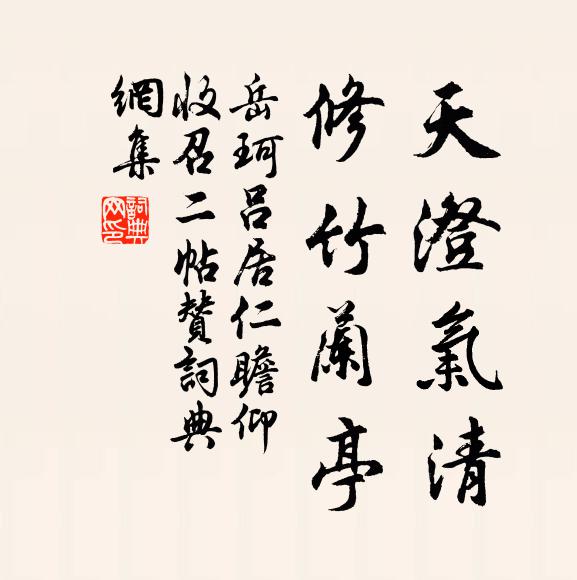 天澄氣清
修竹蘭亭
岳珂呂居仁瞻仰
收召二帖贊詞典
網集
詞典
网印